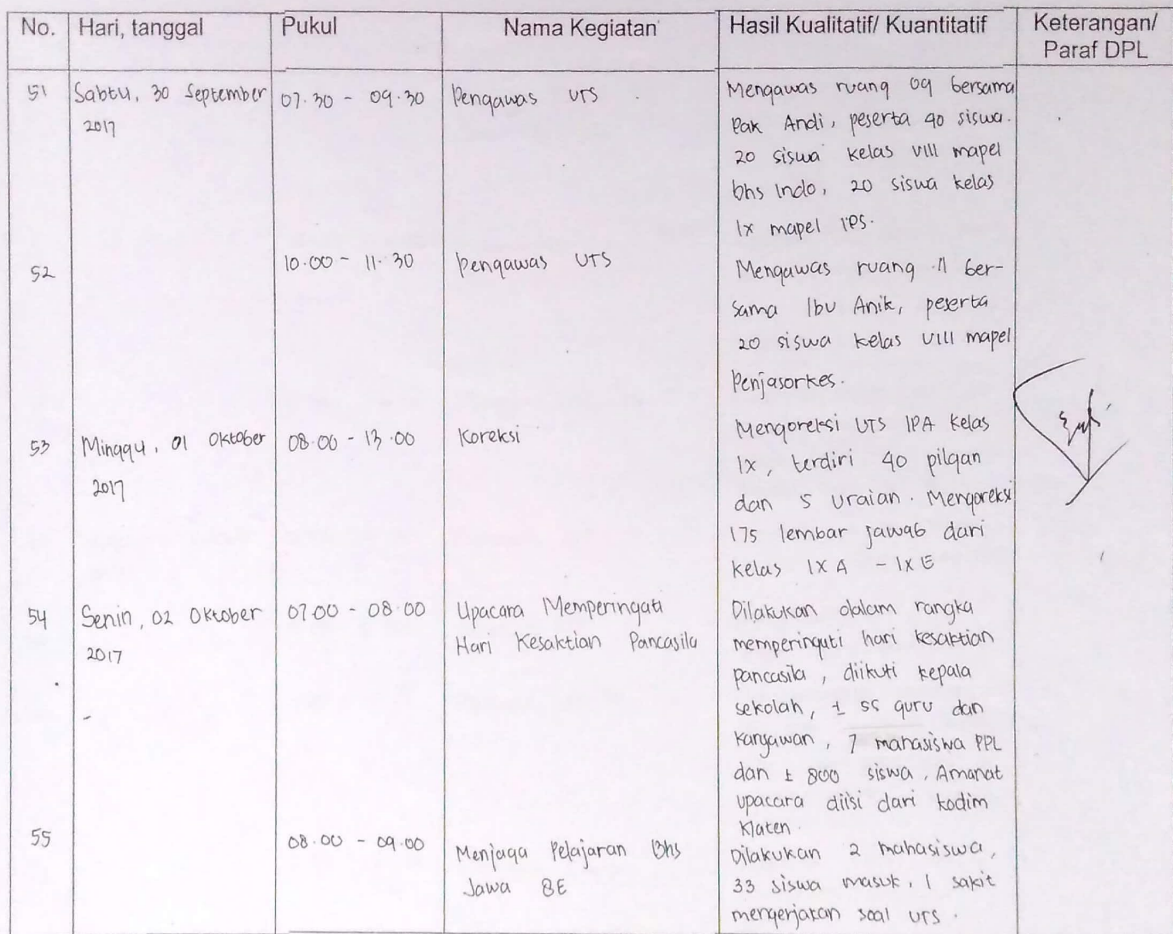 No. Hari, tanggal Pukul Nama Kegiatan Hasil Kualitatif/ Kuantitatif Keterangan/
Paraf DPL
51 Sabtu, 30 September 07.30 - 09.30 Pengawas UTS Mengawas ruang 09 bersama
2017 Pak Andi, peserta 40 siswa.
20 siswa kelas VIII mapel
bhs Indo, 20 siswa kelas
IX mapel IPS.
52 10.00 - 11.30 Pengawas UTS Mengawas ruang 11 ber-
sama Ibu Anik, peserta
20 siswa kelas VIII mapel
Penjasorkes.
53 Minggu, 01 Oktober 08.00 - 13.00 Koreksi Mengoreksi UTS IPA Kelas
2017 IX, terdiri 40 pilgan
dan 5 uraian. Mengoreksi
175 lembar jawab dari
kelas IX A - IX E
54 Senin, 02 Oktober 07.00 - 08.00 Upacara Memperingati Dilakukan dalam rangka
2017 Hari Kesaktian Pancasila memperinguti hari kesaktian
pancasila, diikuti kepala
sekolah, ± 55 guru dan
Karyawan, 7 mahasiswa PPL
dan ± 800 siswa, Amanat
upacara diisi dari kodim
Klaten.
55 08.00 - 09.00 Menjaga Pelajaran Bhs Dilakukan 2 mahasiswa,
Jawa 8E 33 siswa masuk, 1 sakit
mengerjakan soal UTS.